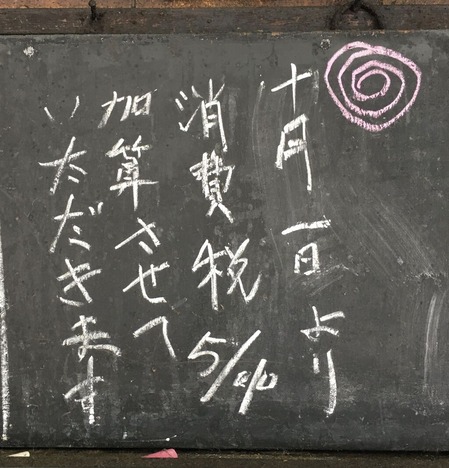 十月一日より
消費税5/%
加算させて
いただきます